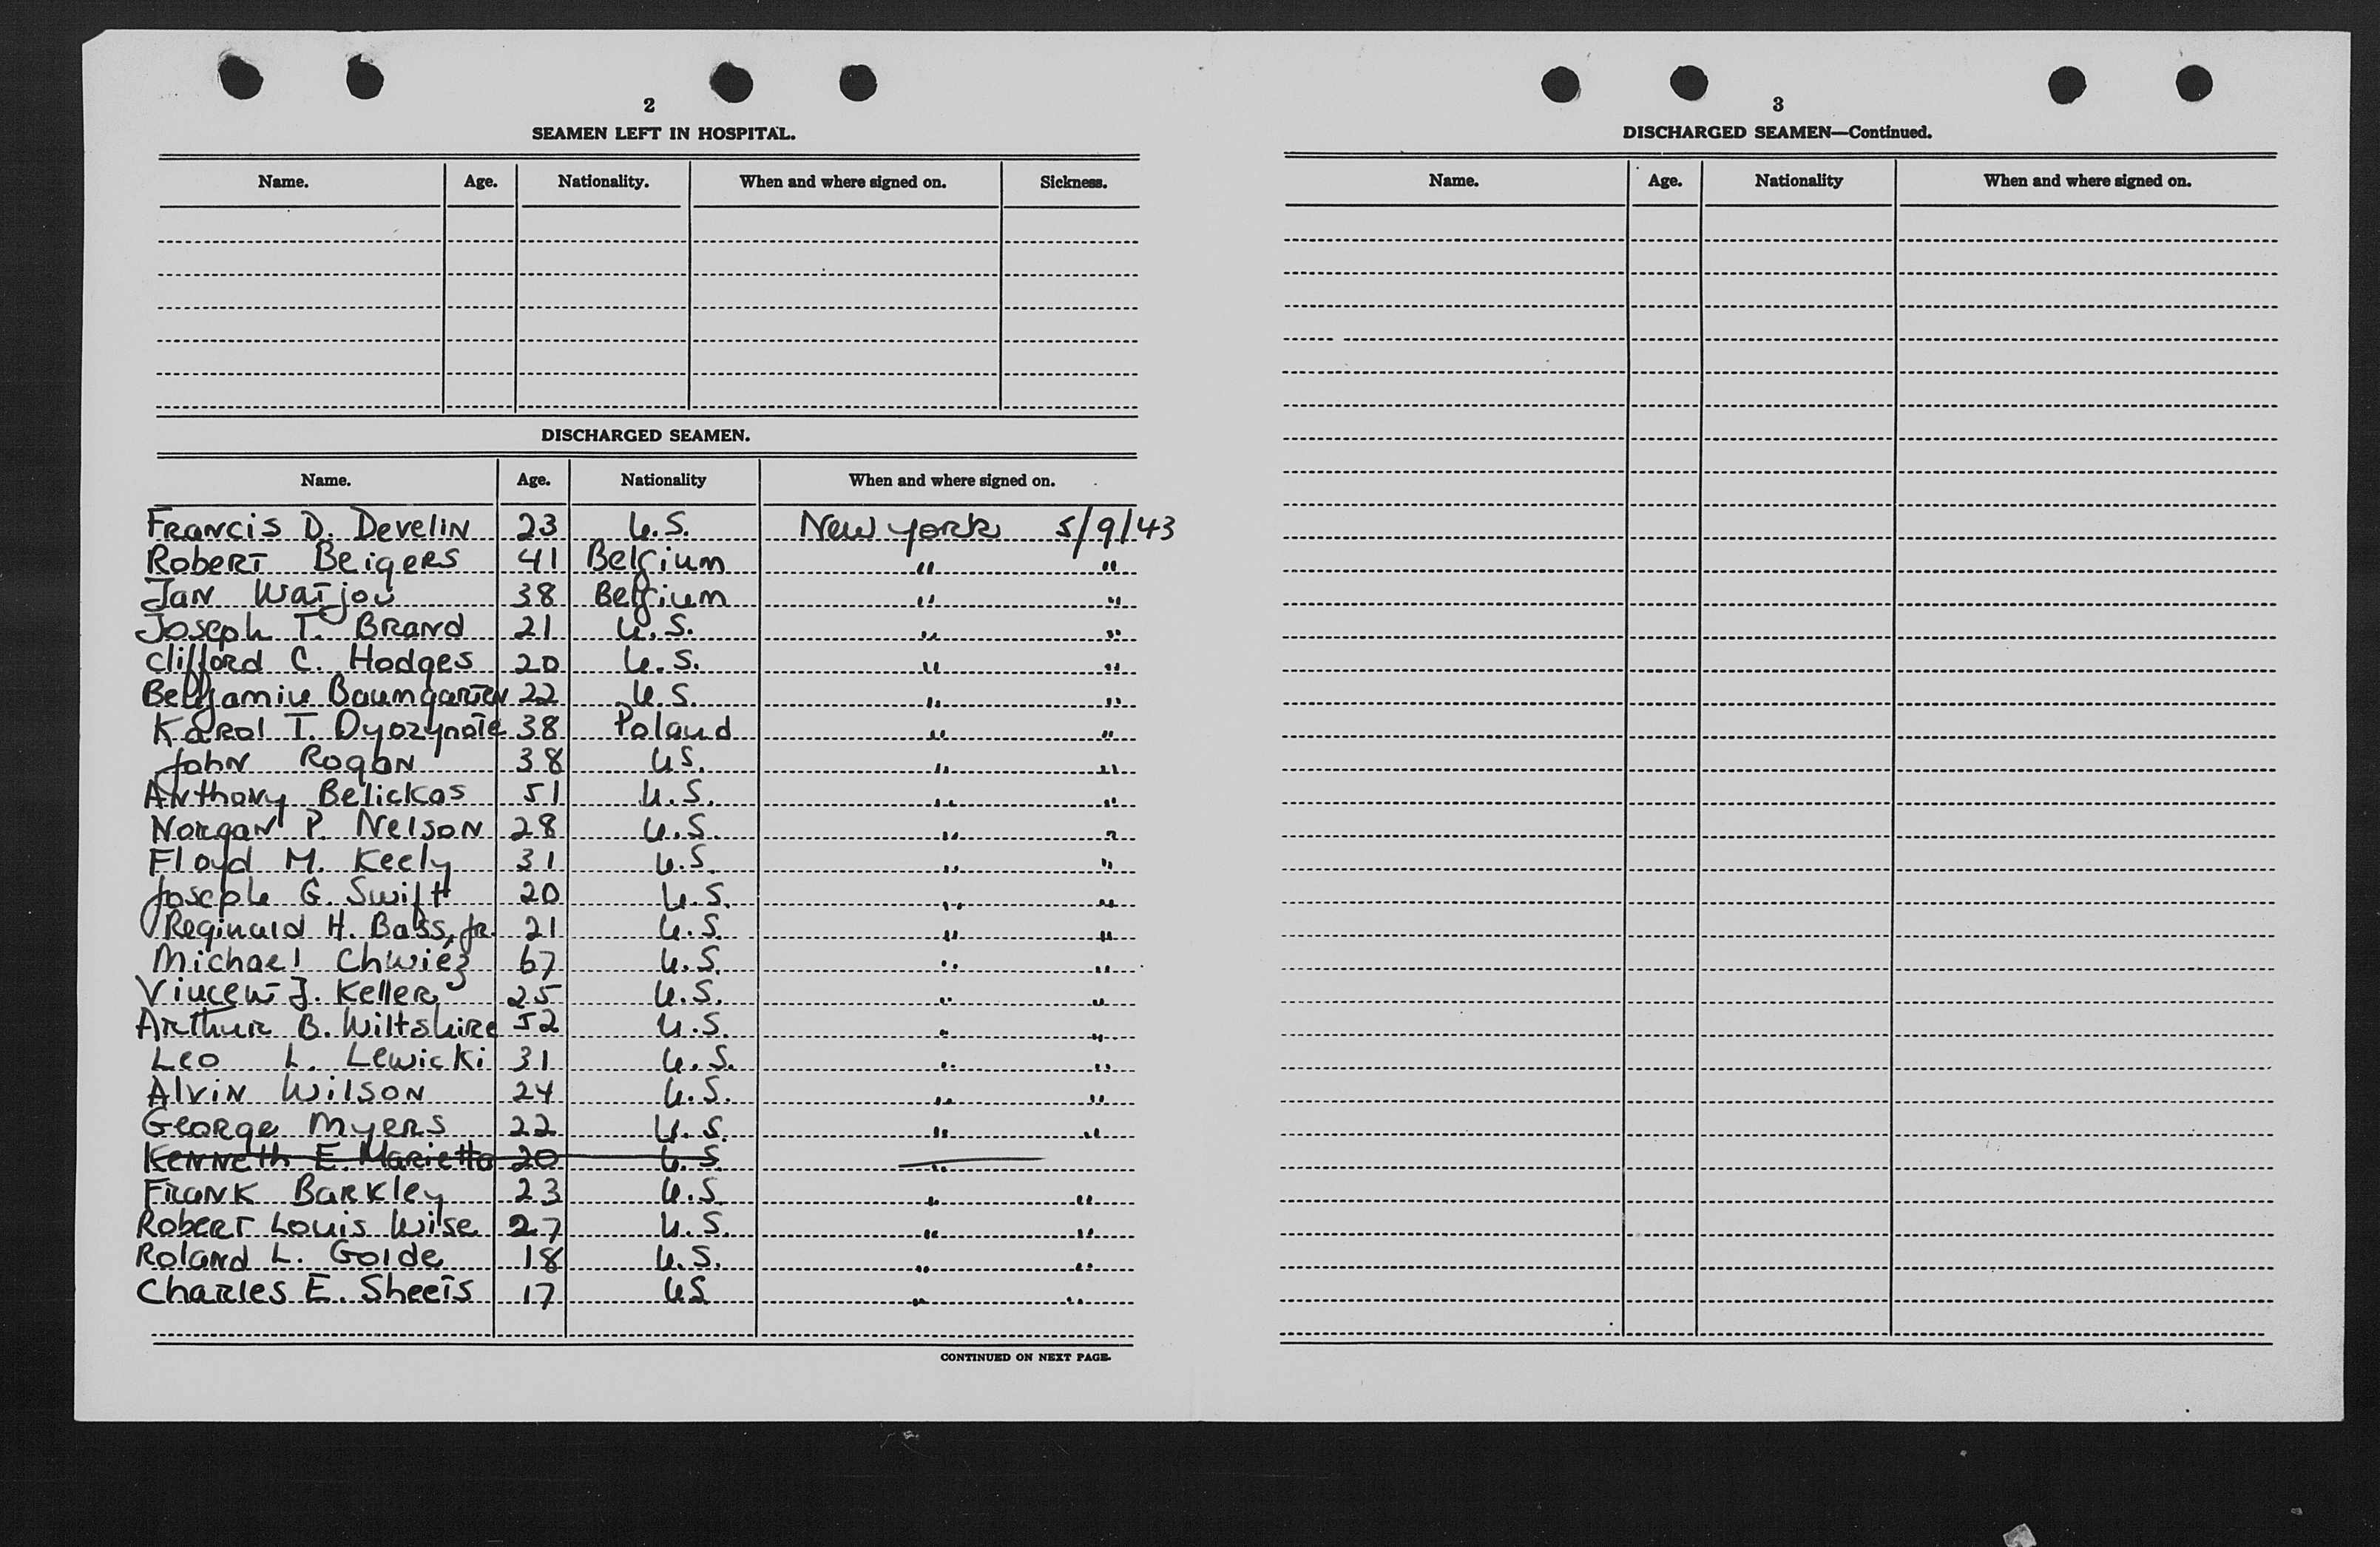 2
SEAMEN LEFT IN HOSPITAL.
Name. Age. Nationality. When and where signed on. Sickness.
DISCHARGED SEAMEN.
Name. Age. Nationality When and where signed on.
Francis D. Develin 23 U.S. New York 5/9/43
Robert Beigers 41 Belgium " "
Jan Watjou 38 Belgium " "
Joseph T. Brand 21 U.S. " "
Clifford C. Hodges 20 U.S. " "
Benjamin Baumgarten 22 U.S. " "
Karol T. 38 Poland " "
John Rogan 38 US. " "
Anthony Belickas 51 U.S. " "
Norgan P. Nelson 28 U.S. " "
Floyd M. Keely 31 U.S. " "
Joseph G. Swift 20 U.S. " "
Reginald H. Bass, Jr. 21 U.S. " "
Michael Chwiez 67 U.S. " "
Vincent J. Keller 25 U.S. " "
Arthur B. Wiltshire 52 U.S. " "
Leo L. Lewicki 31 U.S. " "
Alvin Wilson 24 U.S. " "
George Myers 22 U.S. " "
Kenneth E. Marietta 20 U.S. "
Frank Barkley 23 U.S. " "
Robert Louis Wise 27 U.S. " "
Roland L. Golde 18 U.S. " "
Charles E. Sheets 17 US " "
CONTINUED ON NEXT PAGE.
3
DISCHARGED SEAMEN—Continued.
Name. Age. Nationality When and where signed on.